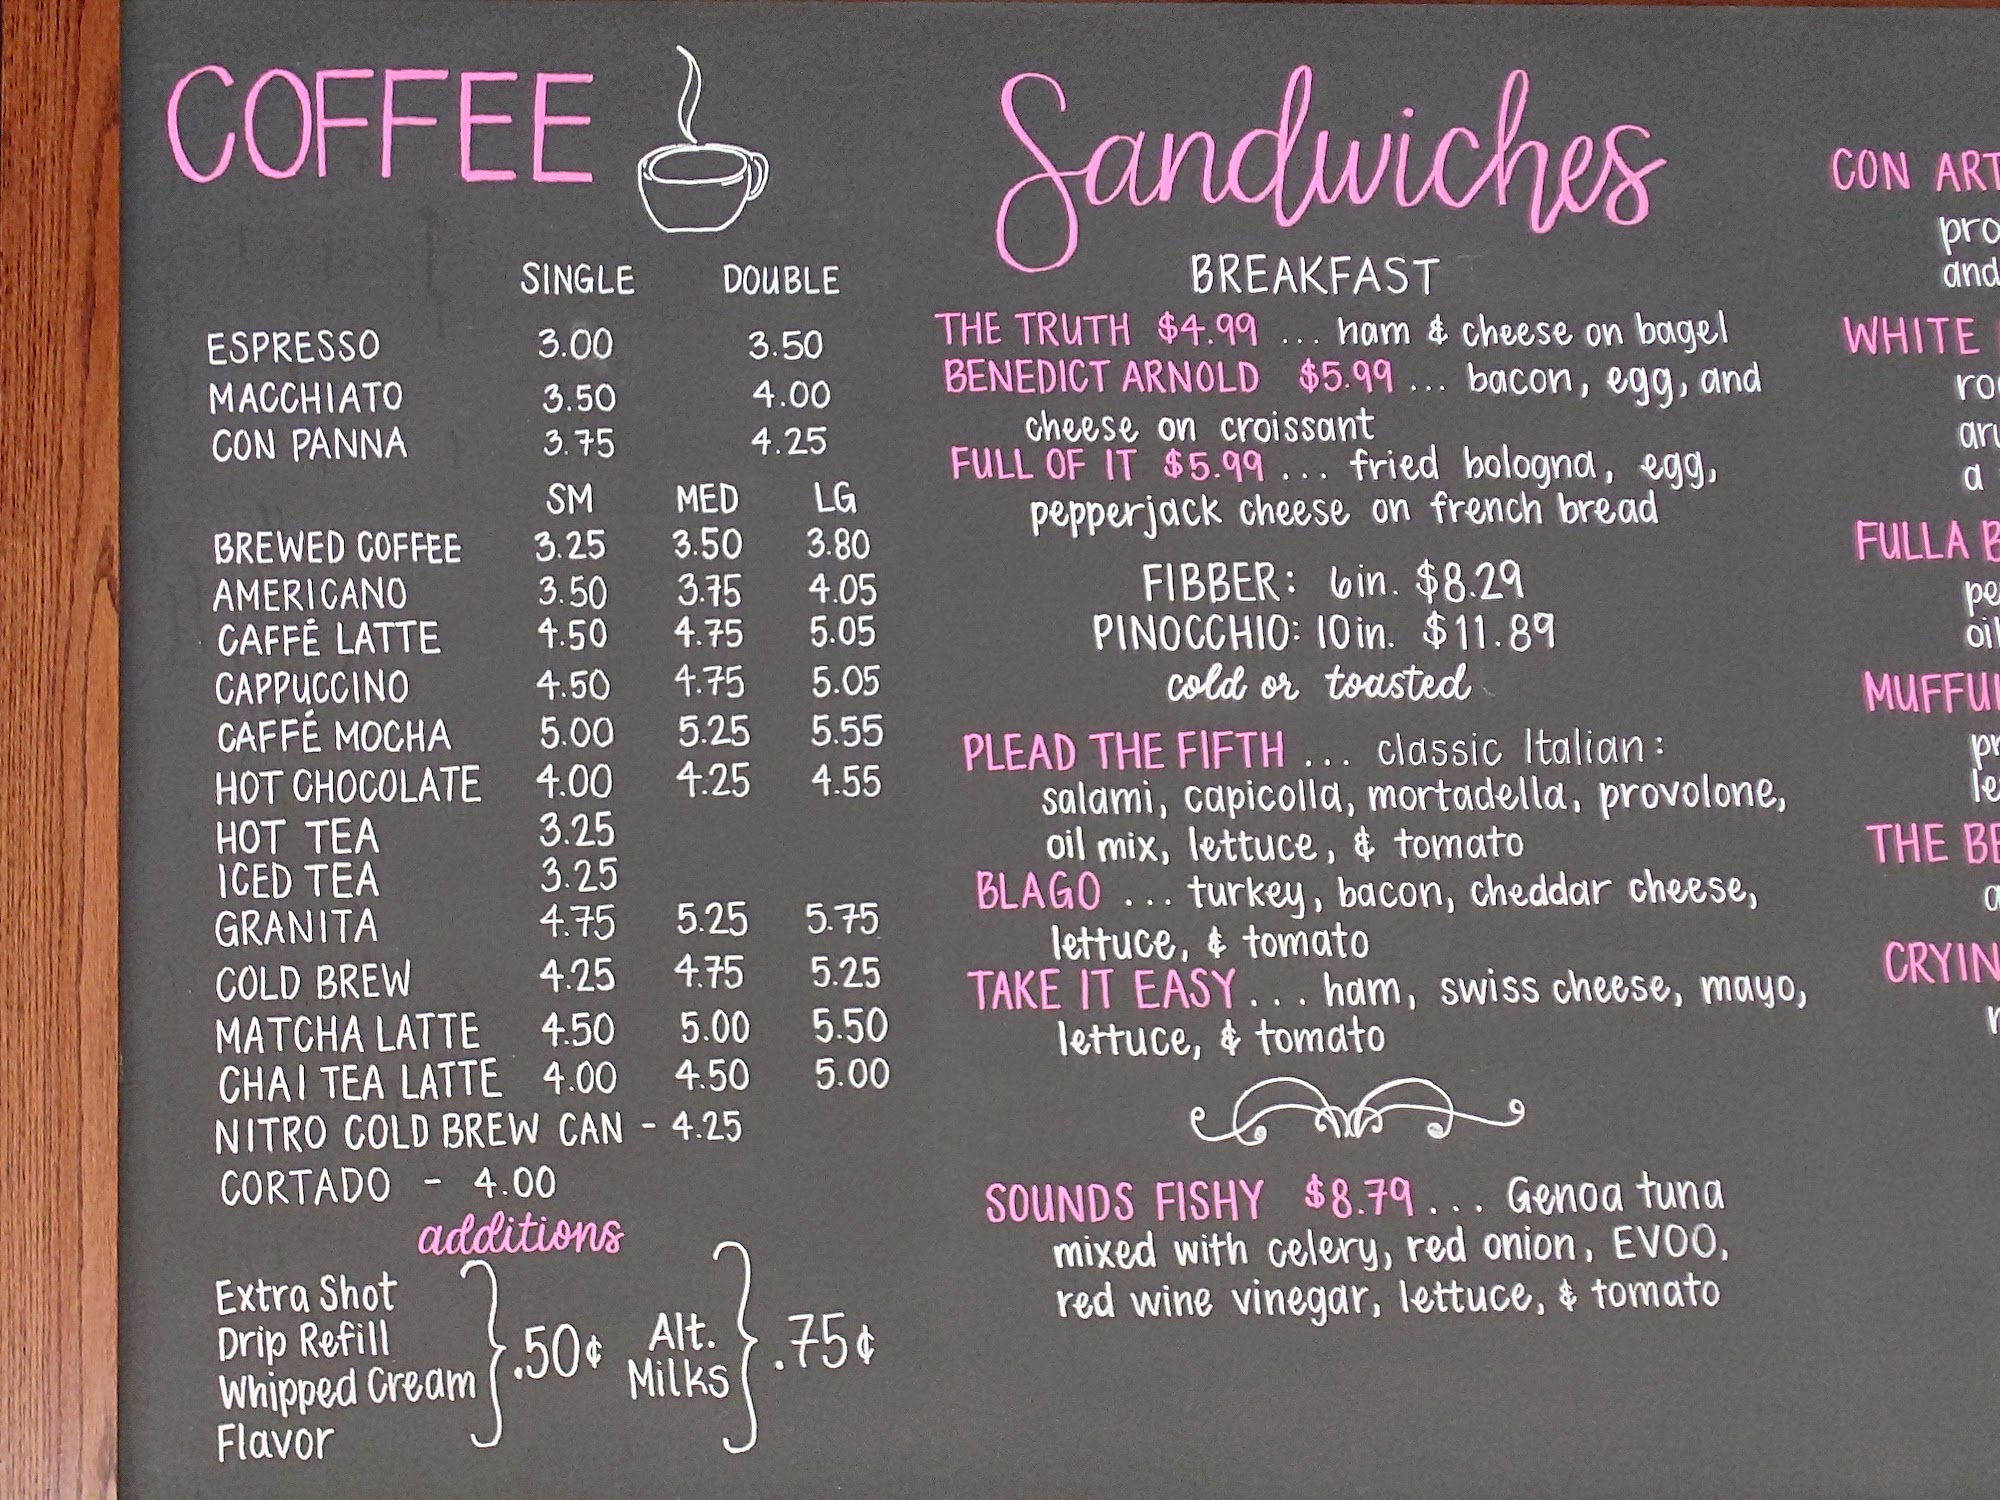 COFFEE
SINGLE DOUBLE
ESPRESSO 3.00 3.50
MACCHIATO 3.50 4.00
CON PANNA 3.75 4.25
SM MED LG
BREWED COFFEE 3.25 3.50 3.80
AMERICANO 3.50 3.75 4.05
CAFFÉ LATTE 4.50 4.75 5.05
CAPPUCCINO 4.50 4.75 5.05
CAFFÉ MOCHA 5.00 5.25 5.55
HOT CHOCOLATE 4.00 4.25 4.55
HOT TEA 3.25
ICED TEA 3.25
GRANITA 4.75 5.25 5.75
COLD BREW 4.25 4.75 5.25
MATCHA LATTE 4.50 5.00 5.50
CHAI TEA LATTE 4.00 4.50 5.00
NITRO COLD BREW CAN - 4.25
CORTADO - 4.00
additions
Extra Shot
Drip Refill
Whipped Cream
Flavor
.50¢
Alt.
Milks
.75¢
Sandwiches
BREAKFAST
THE TRUTH $4.99 ... ham & cheese on bagel
BENEDICT ARNOLD $5.99 ... bacon, egg, and
cheese on croissant
FULL OF IT $5.99 ... fried bologna, egg,
pepperjack cheese on french bread
FIBBER: 6in. $8.29
PINOCCHIO: 10in. $11.89
cold or toasted
PLEAD THE FIFTH ... classic Italian:
salami, capicolla, mortadella, provolone,
oil mix, lettuce, & tomato
BLAGO ... turkey, bacon, cheddar cheese,
lettuce, & tomato
TAKE IT EASY ... ham, swiss cheese, mayo,
lettuce, & tomato
SOUNDS FISHY $8.79 ... Genoa tuna
mixed with celery, red onion, EVOO,
red wine vinegar, lettuce, & tomato
CON
and
WHITE
a
FULLA
THE